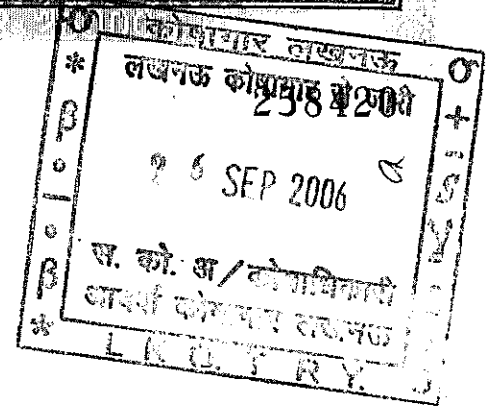 कोषागार लखनऊ
लखनऊ कोषागार से जारी
258420
26 SEP 2006
स. को. अ/कोषाधिकारी
आदर्श कोषागार लखनऊ
LKO. TRY.